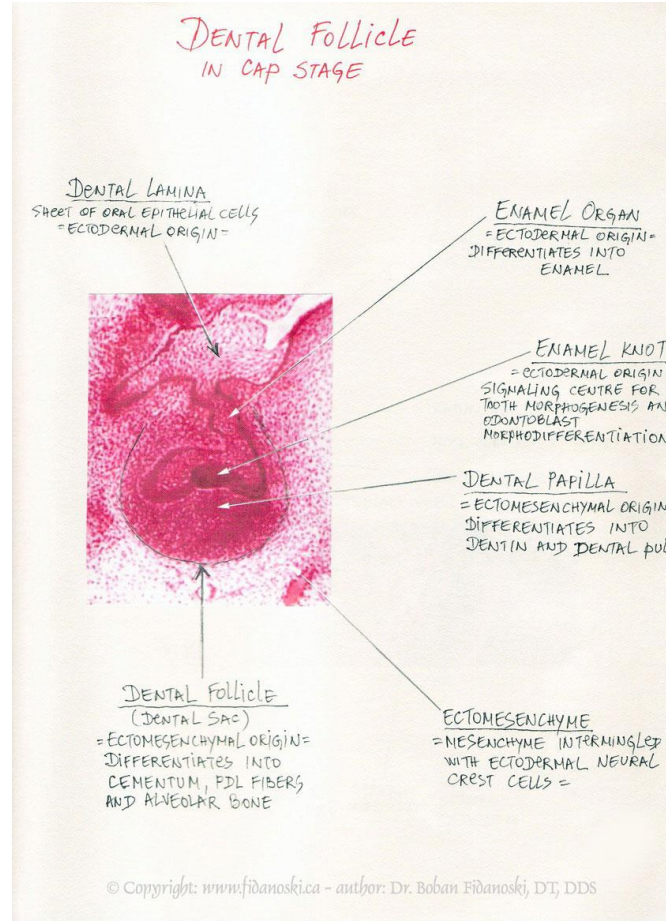 DENTAL FOLLICLE
IN CAP STAGE
DENTAL LAMINA
SHEET OF ORAL EPITHELIAL CELLS
=ECTODERMAL ORIGIN=
ENAMEL ORGAN
=ECTODERMAL ORIGIN=
DIFFERENTIATES INTO
ENAMEL
ENAMEL KNOT
=ECTODERMAL ORIGIN
SIGNALING CENTRE FOR
TOOTH MORPHOGENESIS AN
ODONTOBLAST
MORPHODIFFERENTIATION
DENTAL PAPILLA
=ECTOMESENCHYMAL ORIGIN
DIFFERENTIATES INTO
DENTIN AND DENTAL PUL
DENTAL FOLLICLE
(DENTAL SAC)
=ECTOMESENCHYMAL ORIGIN=
DIFFERENTIATES INTO
CEMENTUM, PDL FIBERS
AND ALVEOLAR BONE
ECTOMESENCHYME
=MESENCHYME INTERMINGLED
WITH ECTODERMAL NEURAL
CREST CELLS=
© Copyright: www.fidanoski.ca - author: Dr. Boban Fidanoski, DT, DDS